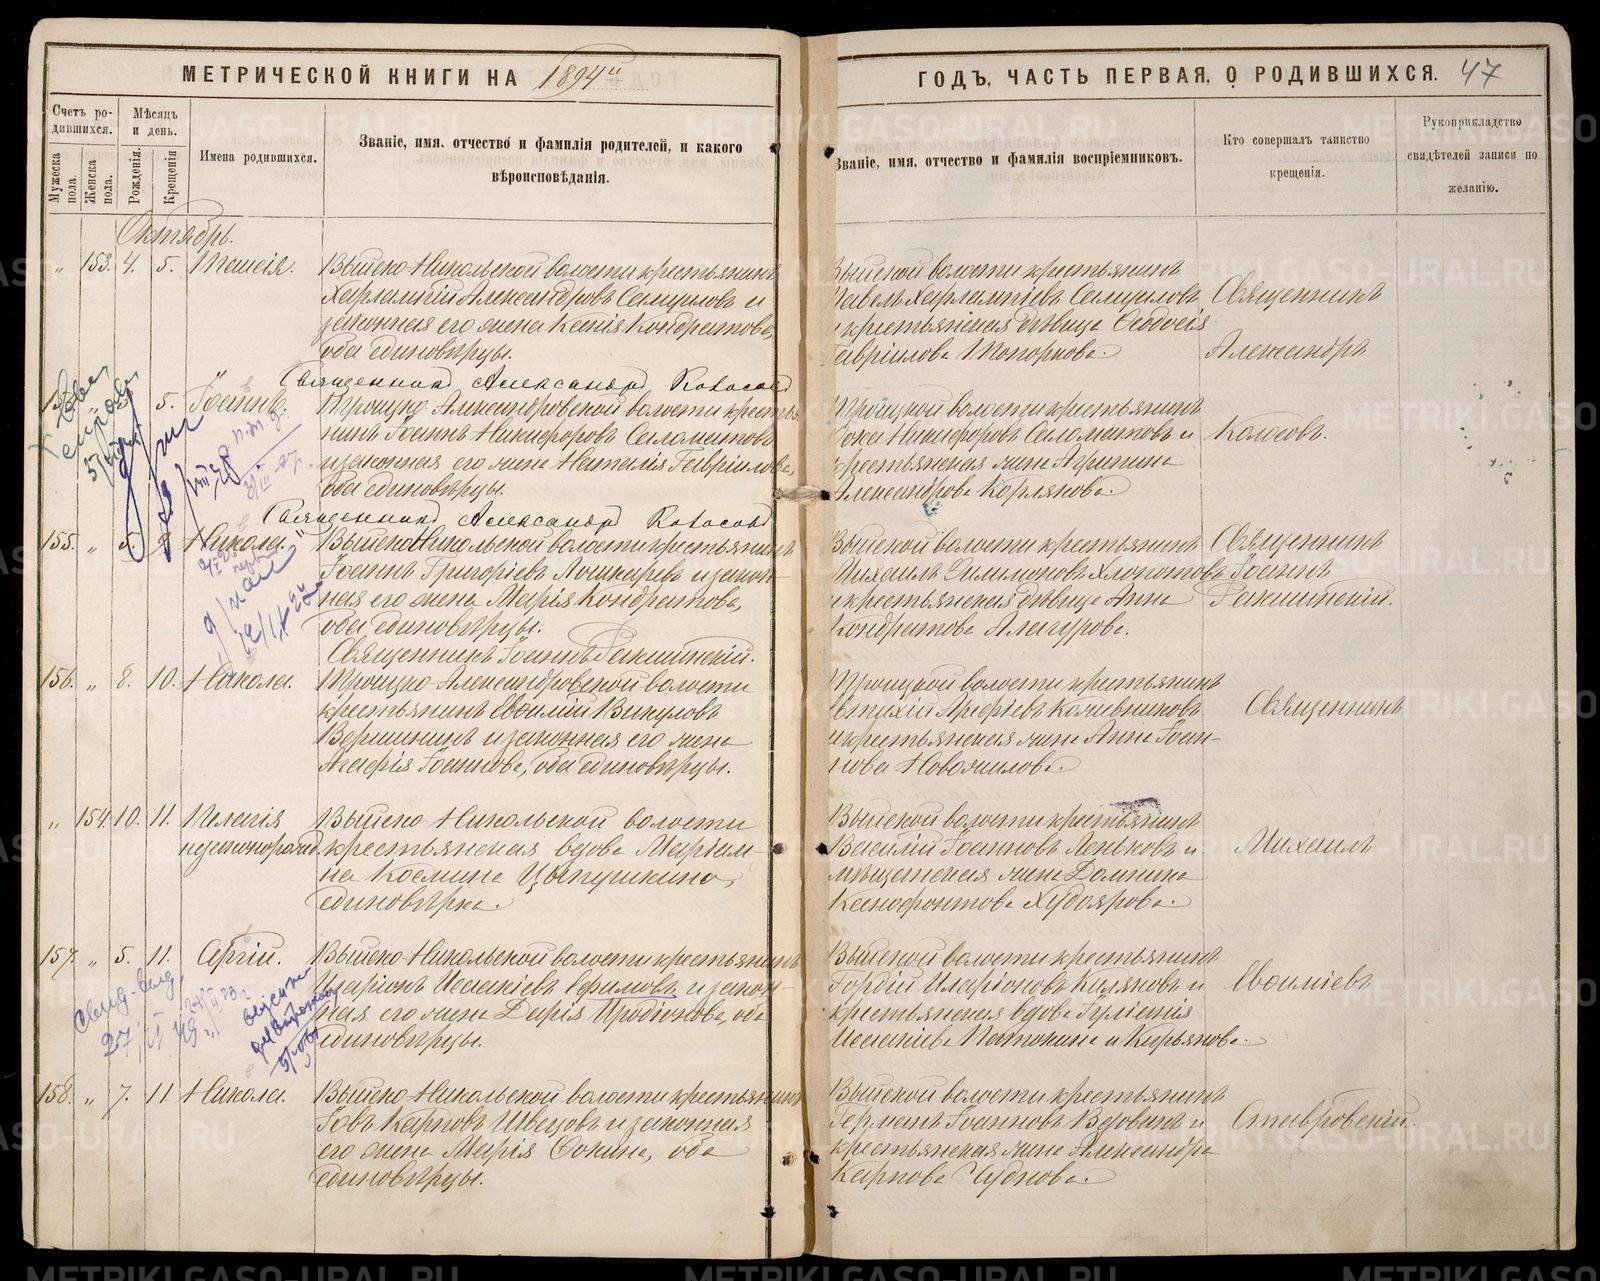 МЕТРИЧЕСКОЙ КНИГИ НА 1894й
ГОДЪ, ЧАСТЬ ПЕРВАЯ, О РОДИВШИХСЯ. 47
Счетъ родившихся.
Мужеска пола.
Женска пола.
Мѣсяцъ и день.
Рожденія.
Крещенія
Имена родившихся.
Званіе, имя, отчество и фамилія родителей, и какого
вѣроисповѣданія.
Званіе, имя, отчество и фамилія воспріемниковъ.
Кто совершалъ таинство
крещенія.
Рукоприкладство
свидѣтелей записи по
желанію.
Октябрь.
„ 153. 4. 5. Таисія.
Выйско-Никольской волости крестьянинъ
Харлампій Александровъ Самуиловъ и
законная его жена Ксенія Кондратова,
оба единовѣрцы.
Выйской волости крестьянинъ
Павелъ Харлампіевъ Самуиловъ
и крестьянская дѣвица Ѳеодосія
Гавріилова Топоркова.
Священникъ
Александръ
Священникъ Александръ Колосовъ
„ 5. Іоаннъ.
Троицко-Александровской волости крестья-
нинъ Іоаннъ Никифоровъ Саламатовъ
и законная его жена Наталія Гавріилова,
оба единовѣрцы.
Троицкой волости крестьянинъ
Никифоровъ Саламатовъ и
крестьянская жена Агрипина
Александрова Корлякова.
Колосовъ.
Священникъ Александръ Колосовъ
155. „ Николай.
Выйско-Никольской волости крестьянинъ
Іоаннъ Григоріевъ Лошкаревъ и закон-
ная его жена Марія Кондратова,
оба единовѣрцы.
Выйской волости крестьянинъ
Михаилъ Хлопотовъ
и крестьянская дѣвица Анна
Кондратова
Священникъ
Іоаннъ
Ракшинскій.
Священникъ Іоаннъ Ракшинскій.
156. „ 8. 10. Николай.
Троицко-Александровской волости
крестьянинъ Евѳимій Викуловъ
Вершининъ и законная его жена
Марія Іоаннова, оба единовѣрцы.
Троицкой волости крестьянинъ
Евтихій Арефіевъ Кочевниковъ
и крестьянская жена Анна Іоан-
нова Новожилова.
Священникъ
„ 154. 10. 11. Пелагія
незаконорожд.
Выйско-Никольской волости
крестьянская вдова Маріам-
на Космина Цыпушкина,
единовѣрка.
Выйской волости крестьянинъ
Василій Іоанновъ Леньковъ и
мѣщанская жена Домника
Ксенофонтова Худоярова.
Михаилъ
157. „ 5. 11. Сергій.
Выйско-Никольской волости крестьянинъ
Иларіонъ Исаакіевъ и закон-
ная его жена Дарія Иродіонова, оба
единовѣрцы.
Выйской волости крестьянинъ
Гордій Иларіоновъ и
крестьянская вдова Іуліанія
Исаакіева и Кирьянова.
Евѳиміевъ
158. „ 7. 11. Николай.
Выйско-Никольской волости крестьянинъ
Іовъ Карповъ Швецовъ и законная
его жена Марія Ѳокина, оба
единовѣрцы.
Выйской волости крестьянинъ
Германъ Іоанновъ Вдовинъ и
крестьянская жена Александра
Карпова Чуднова.
Ставровскій.
METRIKI.GASO-URAL.RU